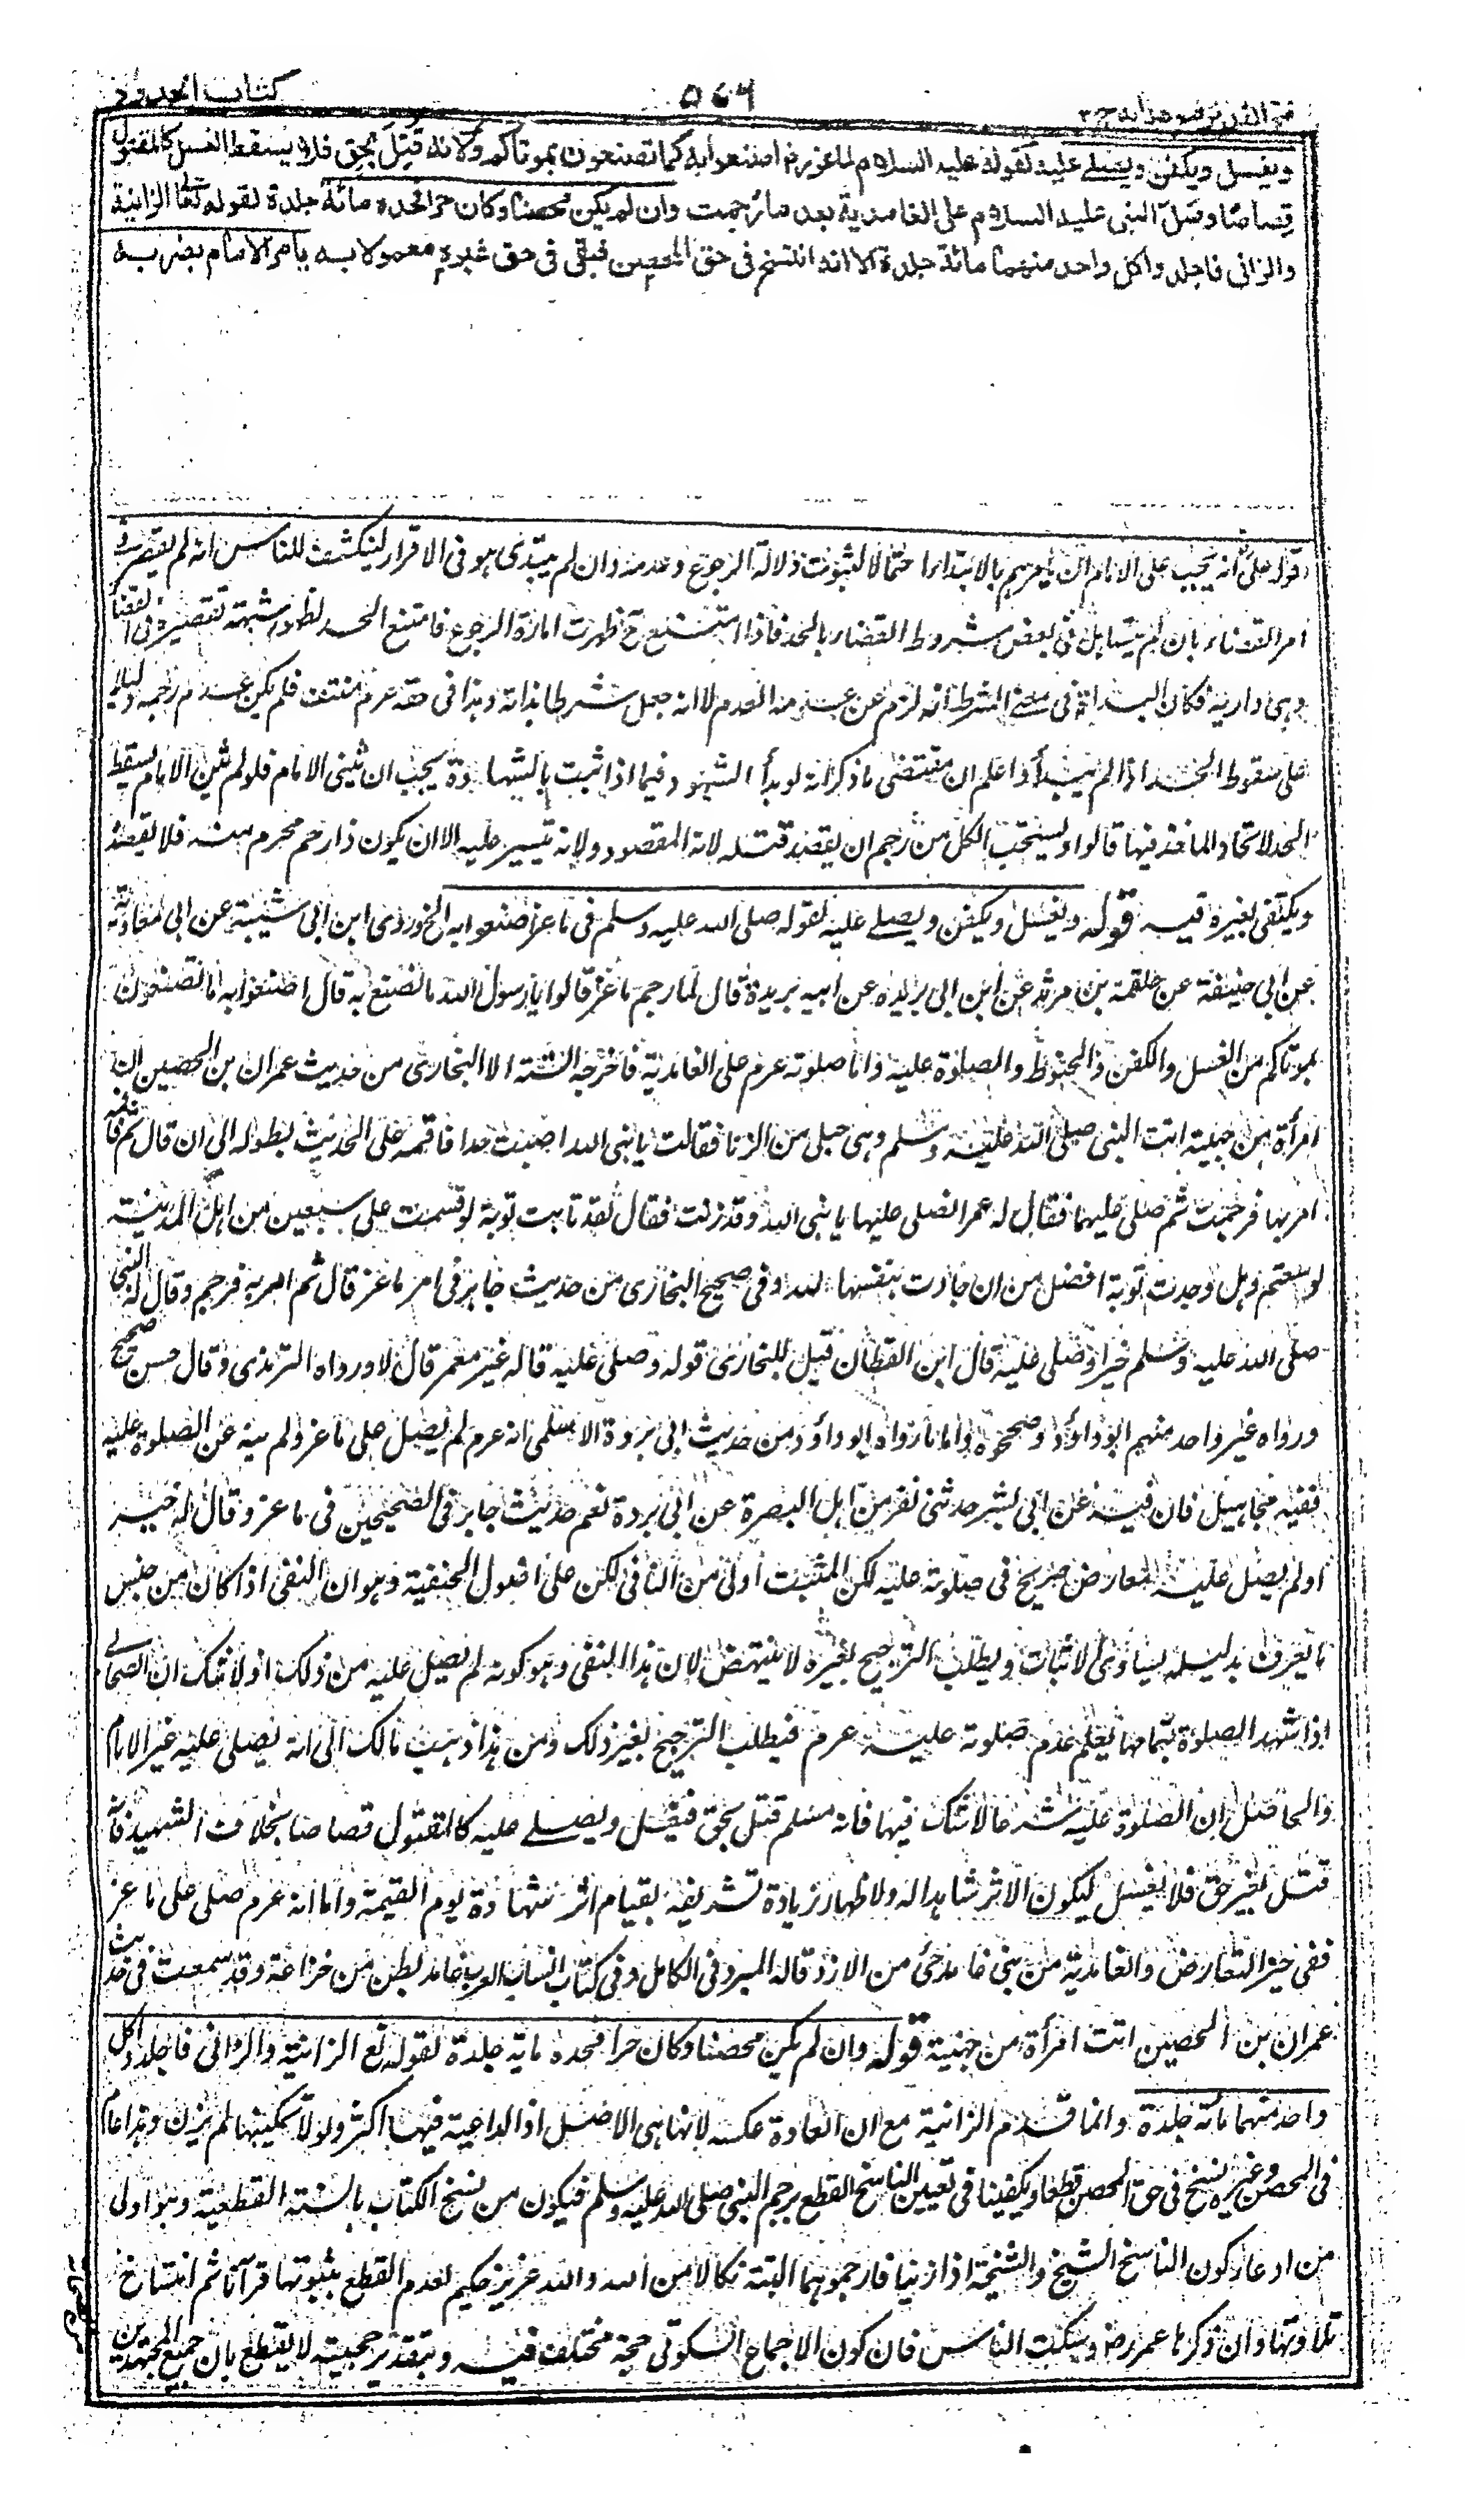 كتاب الحدود
٥٤٦
فتح القدير مع هدايه ج ٢
ويغسل ويكفن ويصلے عليه لقوله عليه السلام لماعز رض اصنعوا به كما تصنعون بموتاكم ولانه قتل بحق فلا يسقط الغسل كالمقتول
قصاصا وصلى النبى عليه السلام على الغامدية بعد ما رجمت وان لم يكن محصنا وكان حرا فحده مائة جلدة لقوله تعا الزانية
والزانى فاجلدوا كل واحد منهما مائة جلدة الا انه انتسخ فى حق المحصن فبقى فى حق غيره معمولا به يامر الامام بضربه
قوله على انه يجب على الامام ان يامرهم بالابتداء احتمالا لثبوت دلالة الرجوع وعدمه وان لم يبتدى هو فى الاقرار لينكشف للناس انه لم يقصر فى
امر القضاء بان لم يتساهل فى بعض شروط القضاء بالحد فاذا امتنع ح ظهرت امارة الرجوع فامتنع الحد لظهور شبهة تقصيره فى القضاء
وهى دارئة فكان البداءة فى معنے الشرط اذ لزم عن عدمه العدم لا انه جعل شرطا بذاته وهذا فى حقه عرم منتف فلم يكن عدم رجمه دليلا
على سقوط الحد اذا لم يبدأ واعلم ان مقتضى ما ذكر انه لو بدأ الشهود فيما اذا ثبت بالشهادة يجب ان يثنى الامام فلو لم يثن الامام يسقط
الحد لاتحاد الماخذ فيهما قالوا ويستحب الكل من رجم ان يقصد قتله لانه المقصود ولانه تيسير عليه الا ان يكون ذا رحم محرم منه فلا يقصد
ويكتفى بغيره فيه قوله ويغسل ويكفن ويصلے عليه لقوله صلى الله عليه وسلم فى ماعز اصنعوا به الخ وروى ابن ابى شيبة عن ابى معاوية
عن ابى حنيفة عن علقمة بن مرثد عن ابن ابى بريدة عن ابيه بريدة قال لما رجم ماعز قالوا يا رسول الله ما نصنع به قال اصنعوا به ما تصنعون
بموتاكم من الغسل والكفن والحنوط والصلوة عليه واما صلوته عرم على الغامدية فاخرجه الستة الا البخارى من حديث عمران بن الحصين ان
امرأة من جهينة اتت النبى صلى الله عليه وسلم وهى حبلى من الزنا فقالت يا نبى الله اصبت حدا فاقمه على الحديث بطوله الى ان قال ثم
امر بها فرجمت ثم صلى عليها فقال له عمر اتصلى عليها يا نبى الله وقد زنت فقال لقد تابت توبة لو قسمت على سبعين من اهل المدينة
لوسعتهم وهل وجدت توبة افضل من ان جادت بنفسها لله وفى صحيح البخارى من حديث جابر فى امر ماعز قال ثم امر به فرجم وقال له النبى
صلى الله عليه وسلم خيرا وصلى عليه قال ابن القطان قيل للبخارى قوله وصلى عليه قاله غير معمر قال لا ورواه الترمذى وقال حسن صحيح
ورواه غير واحد منهم ابو داود وصححوه واما ما رواه ابو داود من حديث ابى برزة الاسلمى انه عرم لم يصل على ماعز ولم ينه عن الصلوة عليه
ففيه مجاهيل فان فيه عن ابى بشر حدثنى نفر من اهل البصرة عن ابى بردة نعم حديث جابر فى الصحيحين فى ماعز وقال له خير
او لم يصل عليه معارض صريح فى صلوته عليه لكن المثبت اولى من النافى لكن على اصول الحنفية وهو ان النفى اذا كان من جنس
ما يعرف بدليله يساوى الاثبات ويطلب الترجيح لغيره لا ينتهض لان هذا النفى وهو كونه لم يصل عليه من ذلك اذ لا شك ان الصحابى
اذا شهد الصلوة بتمامها يعلم عدم صلوته عليه عرم فيطلب الترجيح بغير ذلك ومن هذا ذهب مالك الى انه يصلى عليه غير الامام
والحاصل ان الصلوة عليه شرعا لا شك فيها فانه مسلم قتل بحق فيغسل ويصلے عليه كالمقتول قصاصا بخلاف الشهيد فانه
قتل بغير حق فلا يغسل ليكون الاثر شاهدا له ولاظهار زيادة تشريفه بقيام اثر شهادة يوم القيمة واما انه عرم صلى على ماعز
ففى حيز التعارض والغامدية من بنى غامد حى من الازد قاله المبرد فى الكامل وفى كتاب انساب العرب غامد بطن من خزاعة وقد سمعت فى حديث
عمران بن الحصين اتت امرأة من جهينة قوله وان لم يكن محصنا وكان حرا فحده ماية جلدة لقوله تع الزانية والزانى فاجلدوا كل
واحد منهما مائة جلدة وانما قدم الزانية مع ان العادة عكسه لانها هى الاصل اذ الداعية فيها اكثر ولولا تمكينها لم يزن وهذا عام
فى المحصن وغيره نسخ فى حق المحصن قطعا ويكفينا فى تعيين الناسخ القطع برجم النبى صلى الله عليه وسلم فيكون من نسخ الكتاب بالسنة القطعية وهو اولى
من ادعاء كون الناسخ الشيخ والشيخة اذا زنيا فارجموهما البتة نكالا من الله والله عزيز حكيم لعدم القطع بثبوتها قرآنا ثم انتساخ
تلاوتها وان ذكرها عمر رض وسكت الناس فان كون الاجماع السكوتى حجة مختلف فيه وبتقدير حجيته لا يقطع بان جميع المجتهدين